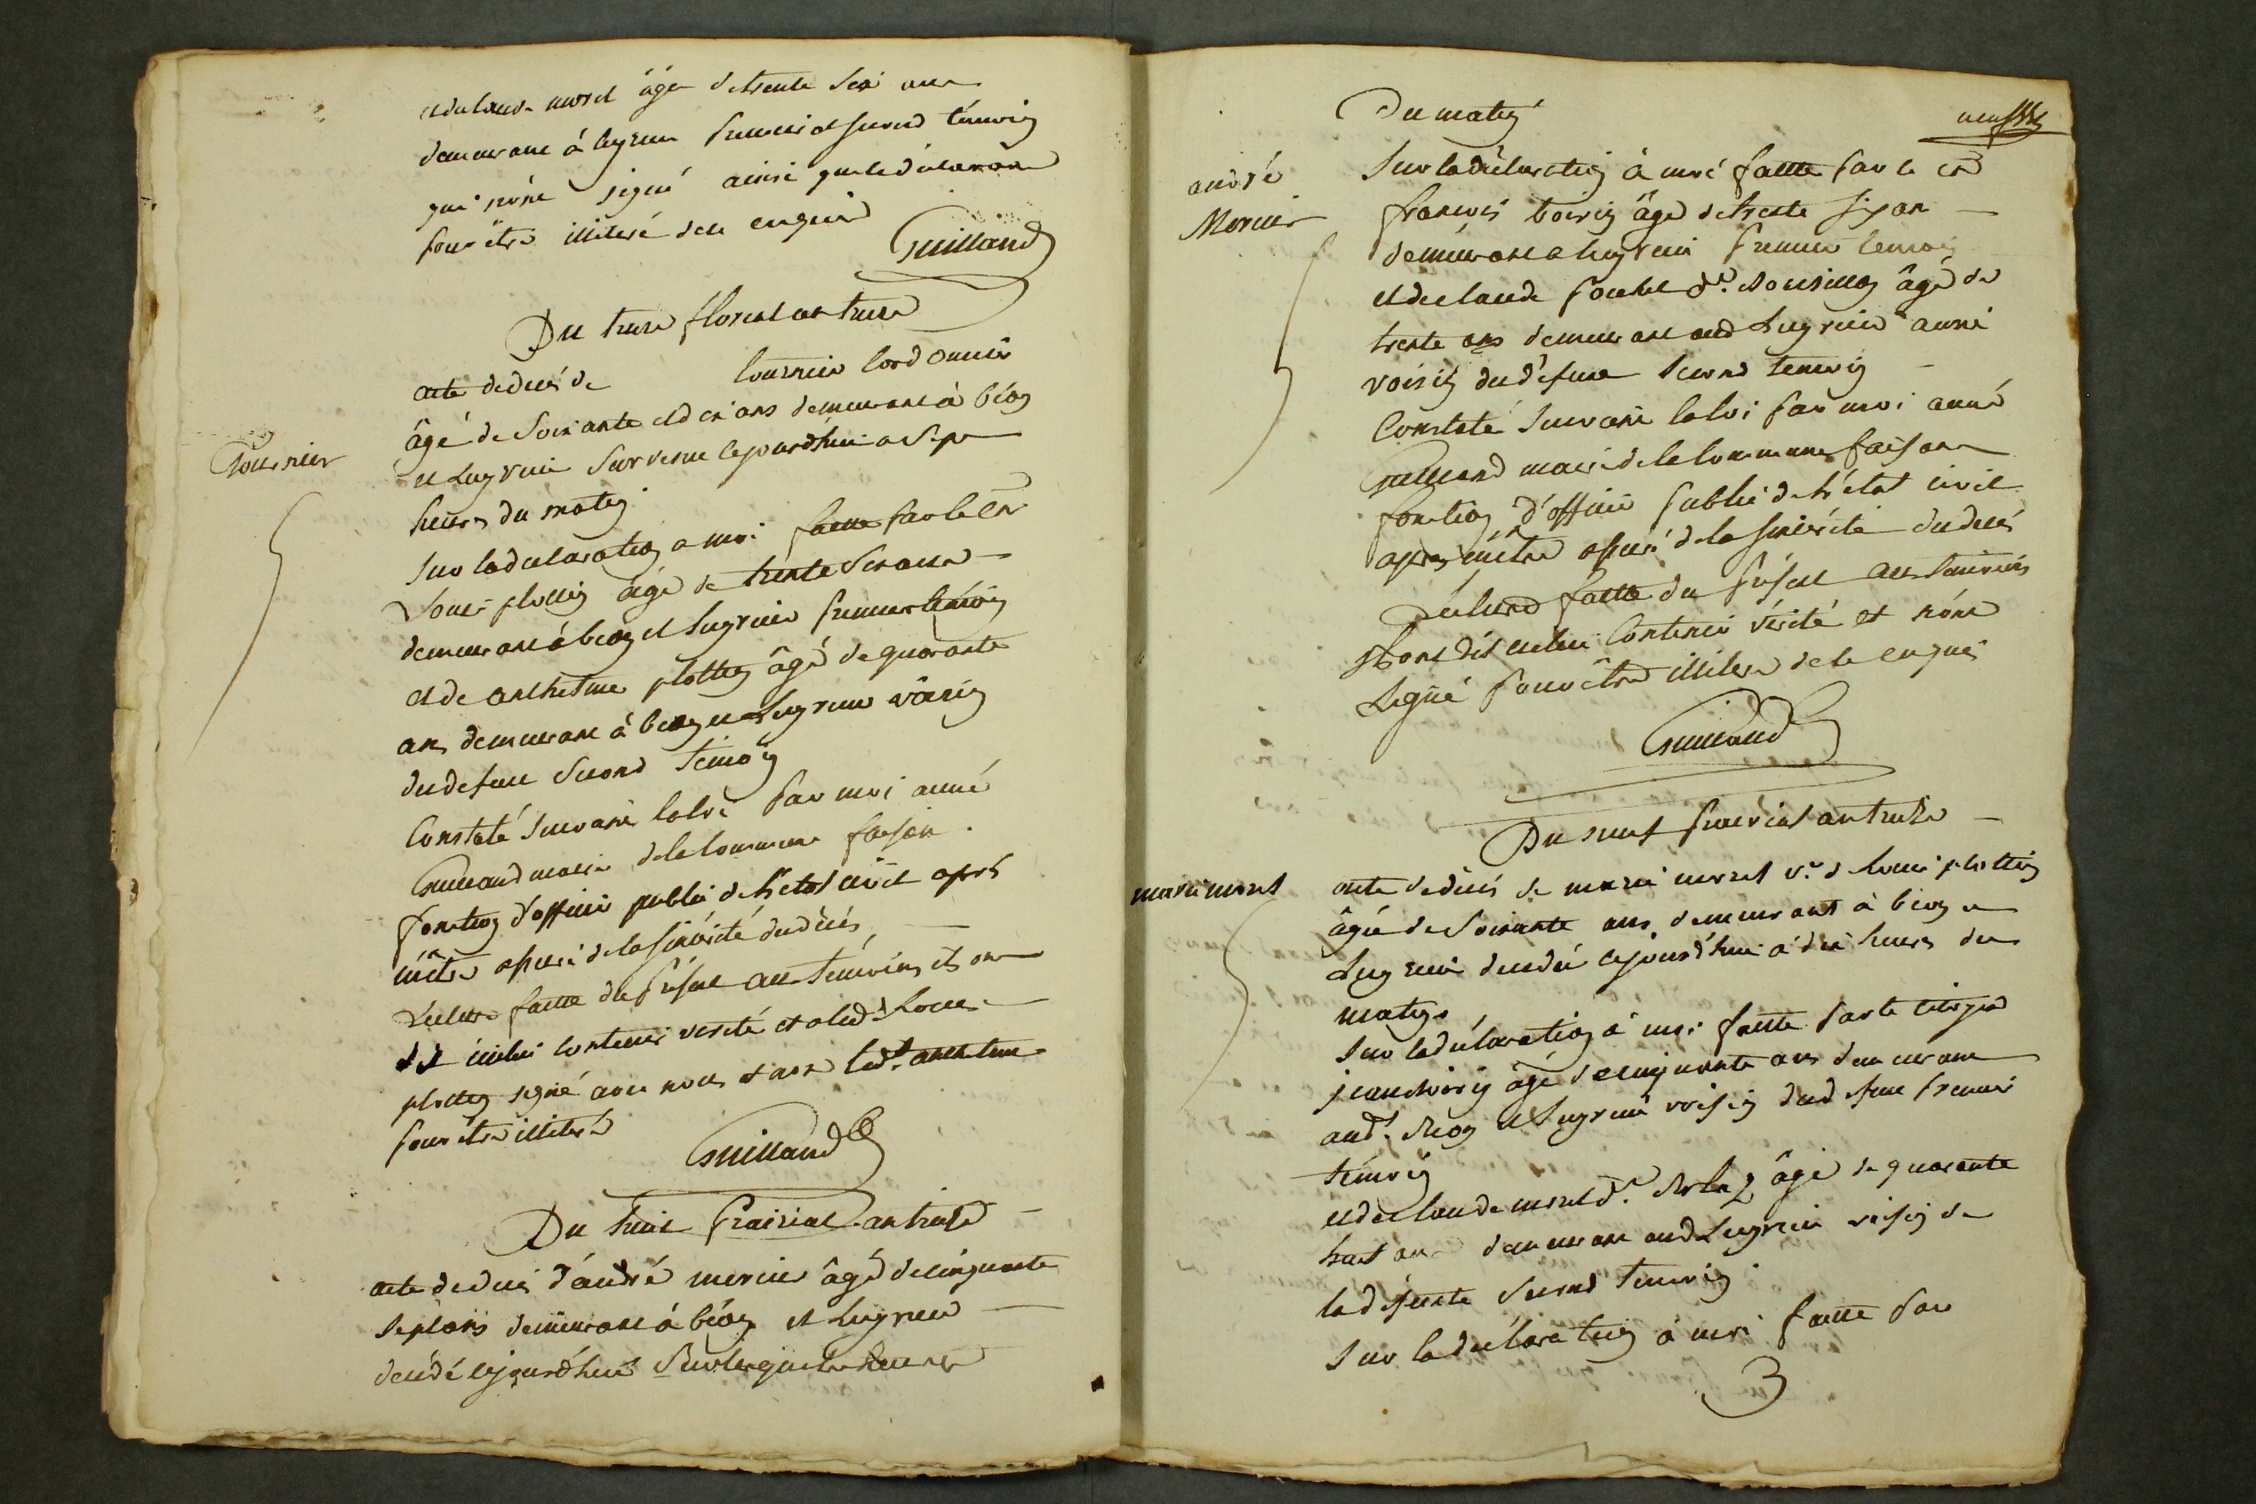 et de laude morel âgé de trente six ans
demeurant à lugrin premier et second témoin
qui n'ont signé ainsi que le déclarant
pour être illiteré de ce enquis
Guillaud
Du treize floreal an treize
acte de decès de tournier Cordonnier
âgé de soixante et dix ans demeurant à béon
Tournier
et Lugrin survenu cejourdhui a sept
heures du matin
sur la declaration a moi faitte par le Cn
Louis plottin âgé de trente six ans
demeurant à beon et Lugrin premier témoin
et de anthelme plottin âgé de quarante
ans demeurant à beon et Lugrin voisin
du defunt second témoin
Constaté suivant la loi par moi aimé
Guillaud maire de la Commune faisant
fonction d'officier public de l'état civil après
m'être assuré de la sincérité du dècès
Lecture faitte du présent aux témoins ils ont
dit icelui contenir verité et a led. Louis
plottin signé avec nous et non led. anthelme
pour être illiteré
Guillaud
Du huit prairial an treize
acte de decès d'andré mercier âgé de cinquante
sept ans demeurant à béon et Lugrin
decédé cejourdhui sur les quatre heures
Du matin
neuf
andré
Mercier
sur la déclaration à moi faitte par le Cn
francois voisin âgé de trente six ans
demeurant a lugrin premier temoin
et de claude pochet dt. âgé de
trente ans demeurant aud Lugrin aussi
voisin du défunt second temoin
Constaté suivant la loi par moi aimé
Guillaud maire de la Commune faisant
fonction d'officier public de l'état civil
après m'être assuré de la sincérité du decès
Lecture faitte du présent aux temoins
ils ont dit icelui Contenir vérité et n'ont
signé pour être illiteré de ce enquis
Guillaud
Du neuf prairial an treize
marie morel
acte de décès de marie morel ve. de Louis plottin
âgée de soixante ans demeurant à béon et
Lugrin decedée cejourd'hui à dix heures du
matin
sur la déclaration à moi faitte par le citoyen
jean voisin âgé de cinquante ans demeurant
aud. Beon et Lugrin voisin du d. defunt premier
témoin
et de claude morel dt. âgé de quarante
huit ans demeurant aud Lugrin voisin de
la défunte second temoin
sur la déclaration à moi faitte par